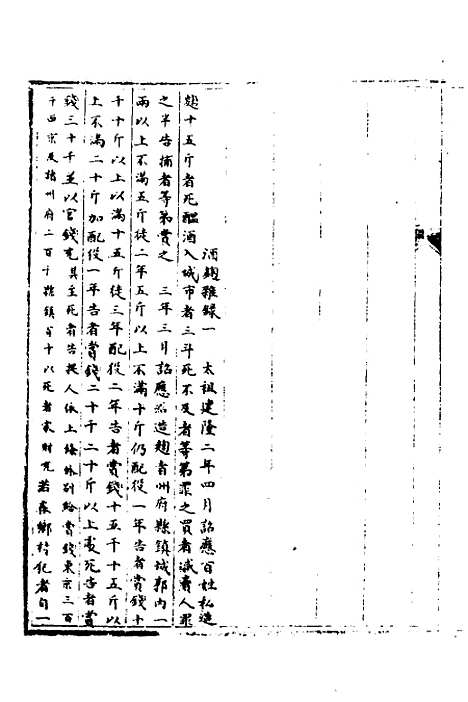 酒麴雜錄一　太祖建隆二年四月詔應百姓私造
麴十五斤者死醖酒入城市者三斗死不及者等第罪之買者減賣人罪
之半告捕者等第賞之　三年三月詔應私造麴者州府縣鎮城郭内一
兩以上不滿五斤徒二年五斤以上不滿十斤仍配役一年告者賞錢十
千十斤以上以滿十五斤徒三年配役二年告者賞錢十五千十五斤以
上不滿二十斤加配役一年告者賞錢二十千二十斤以上處死告者賞
錢三十千並以官錢充其主死者告捉人依上條外別給賞錢東京三百
千西京及諸州府二百千縣鎮百千以死者家財充若在鄉村犯者自一